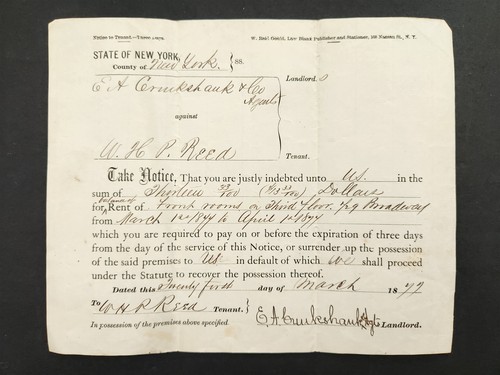 Notice to Tenant.—Three Days.
W. Reid Gould, Law Blank Publisher and Stationer, 168 Nassau St., N. Y.
STATE OF NEW YORK,
County of New York. } ss.
E A Cruikshank & Co
Agents
Landlord.s
against
W. H. P. Reed
Tenant.
Take Notice, That you are justly indebted unto us. in the
sum of Thirteen /100 Dollars
balance of
for Rent of front rooms on Third floor, Broadway
from March 1st 1877 to April 1st 1877
which you are required to pay on or before the expiration of three days
from the day of the service of this Notice, or surrender up the possession
of the said premises to us in default of which we shall proceed
under the Statute to recover the possession thereof.
Dated this Twenty first day of March 1877
To W H P Reed Tenant. }
In possession of the premises above specified.
E. A. Cruikshank Agt Landlord.